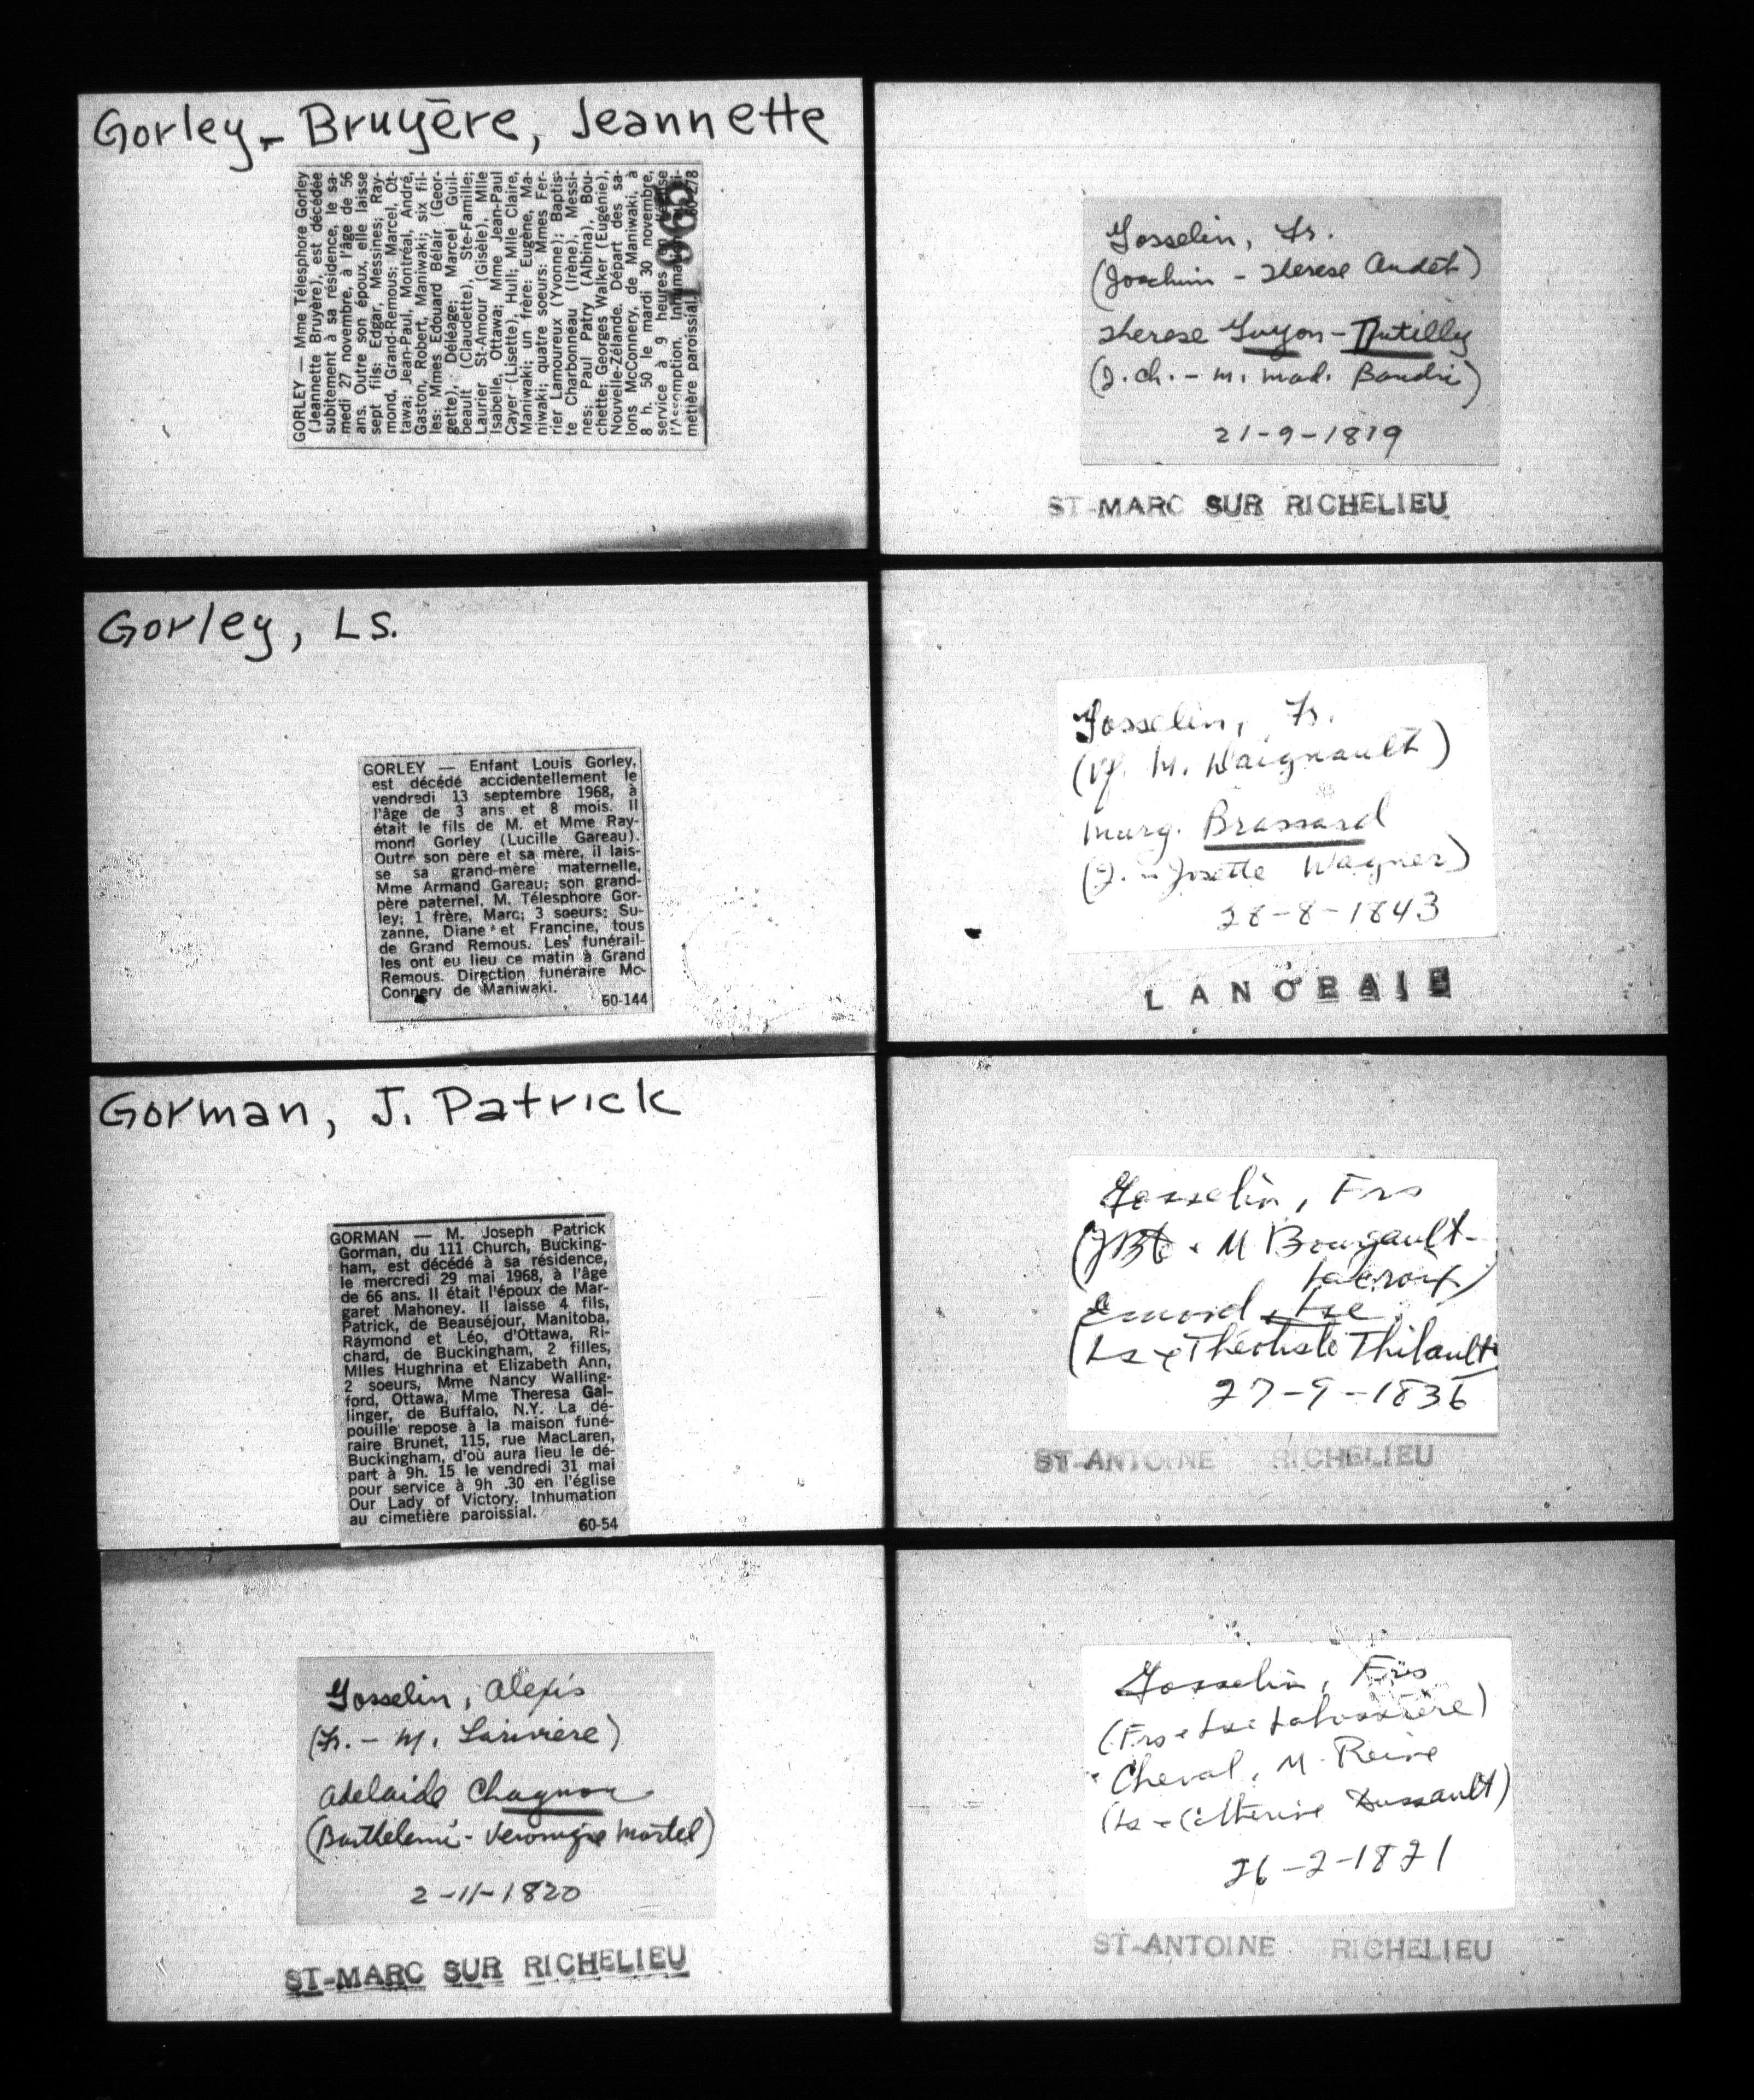 Gorley - Bruyère, Jeannette
GORLEY — Mme Télesphore Gorley
(Jeannette Bruyère), est décédée
subitement à sa résidence, le sa-
medi 27 novembre, à l'âge de 56
ans. Outre son époux, elle laisse
sept fils: Edgar, Messines; Ray-
mond, Grand-Remous; Marcel, Ot-
tawa; Jean-Paul, Montréal, André,
Gaston, Robert, Maniwaki; six fil-
les: Mmes Edouard Bélair (Geor-
gette), Déléage; Marcel Guil-
beault (Claudette), Ste-Famille;
Laurier St-Amour (Gisèle), Mlle
Isabelle, Ottawa; Mme Jean-Paul
Cayer (Lisette), Hull; Mlle Claire,
Maniwaki; un frère: Eugène, Ma-
niwaki; quatre soeurs: Mmes Fer-
rier Lamoureux (Yvonne); Baptis-
te Charbonneau (Irène), Messi-
nes; Paul Patry (Albina), Bou-
chette; Georges Walker (Eugénie),
Nouvelle-Zélande. Départ des sa-
lons McConnery, de Maniwaki, à
8 h. 50 le mardi 30 novembre,
service à 9 heures
l'Assomption.
metière paroissial. 278
1965
Gorley, Ls.
GORLEY — Enfant Louis Gorley,
est décédé accidentellement le
vendredi 13 septembre 1968, à
l'âge de 3 ans et 8 mois. Il
était le fils de M. et Mme Ray-
mond Gorley (Lucille Gareau).
Outre son père et sa mère, il lais-
se sa grand-mère maternelle,
Mme Armand Gareau; son grand-
père paternel, M. Télesphore Gor-
ley; 1 frère, Marc; 3 soeurs; Su-
zanne, Diane et Francine, tous
de Grand Remous. Les funérail-
les ont eu lieu ce matin à Grand
Remous. Direction funéraire Mc-
Connery de Maniwaki.
60-144
Gorman, J. Patrick
GORMAN — M. Joseph Patrick
Gorman, du 111 Church, Bucking-
ham, est décédé à sa résidence,
le mercredi 29 mai 1968, à l'âge
de 66 ans. Il était l'époux de Mar-
garet Mahoney. Il laisse 4 fils,
Patrick, de Beauséjour, Manitoba,
Raymond et Léo, d'Ottawa, Ri-
chard, de Buckingham, 2 filles,
Mlles Hughrina et Elizabeth Ann,
2 soeurs, Mme Nancy Walling-
ford, Ottawa, Mme Theresa Gal-
linger, de Buffalo, N.Y. La dé-
pouille repose à la maison funé-
raire Brunet, 115, rue MacLaren,
Buckingham, d'où aura lieu le dé-
part à 9h. 15 le vendredi 31 mai
pour service à 9h .30 en l'église
Our Lady of Victory. Inhumation
au cimetière paroissial.
60-54
Gosselin, Alexis
(Fr. - M. Larivière)
Adelaide Chagnon
(Barthelemi - Veronique Martel)
2-11-1820
ST-MARC SUR RICHELIEU
Gosselin, Fr.
(Joachim - Therese Audet)
Therese Guyon - Dutilly
(J. Ch. - M. Mad. Baudri)
21-9-1819
ST-MARC SUR RICHELIEU
Gosselin, Fr.
(Vf. M. Daignault)
Marg. Brassard
(J. - Josette Wagner)
28-8-1843
LANORAIE
Gosselin, Frs
(JBte & M Bourgault-
Lacroix)
Emond, Lse
(Ls & Théotiste Thibault)
27-9-1836
ST-ANTOINE RICHELIEU
Gosselin, Frs
(Frs & Lse Labossière)
Cheval, M. Reine
(Ls & Catherine Dussault)
26-2-1821
ST-ANTOINE RICHELIEU